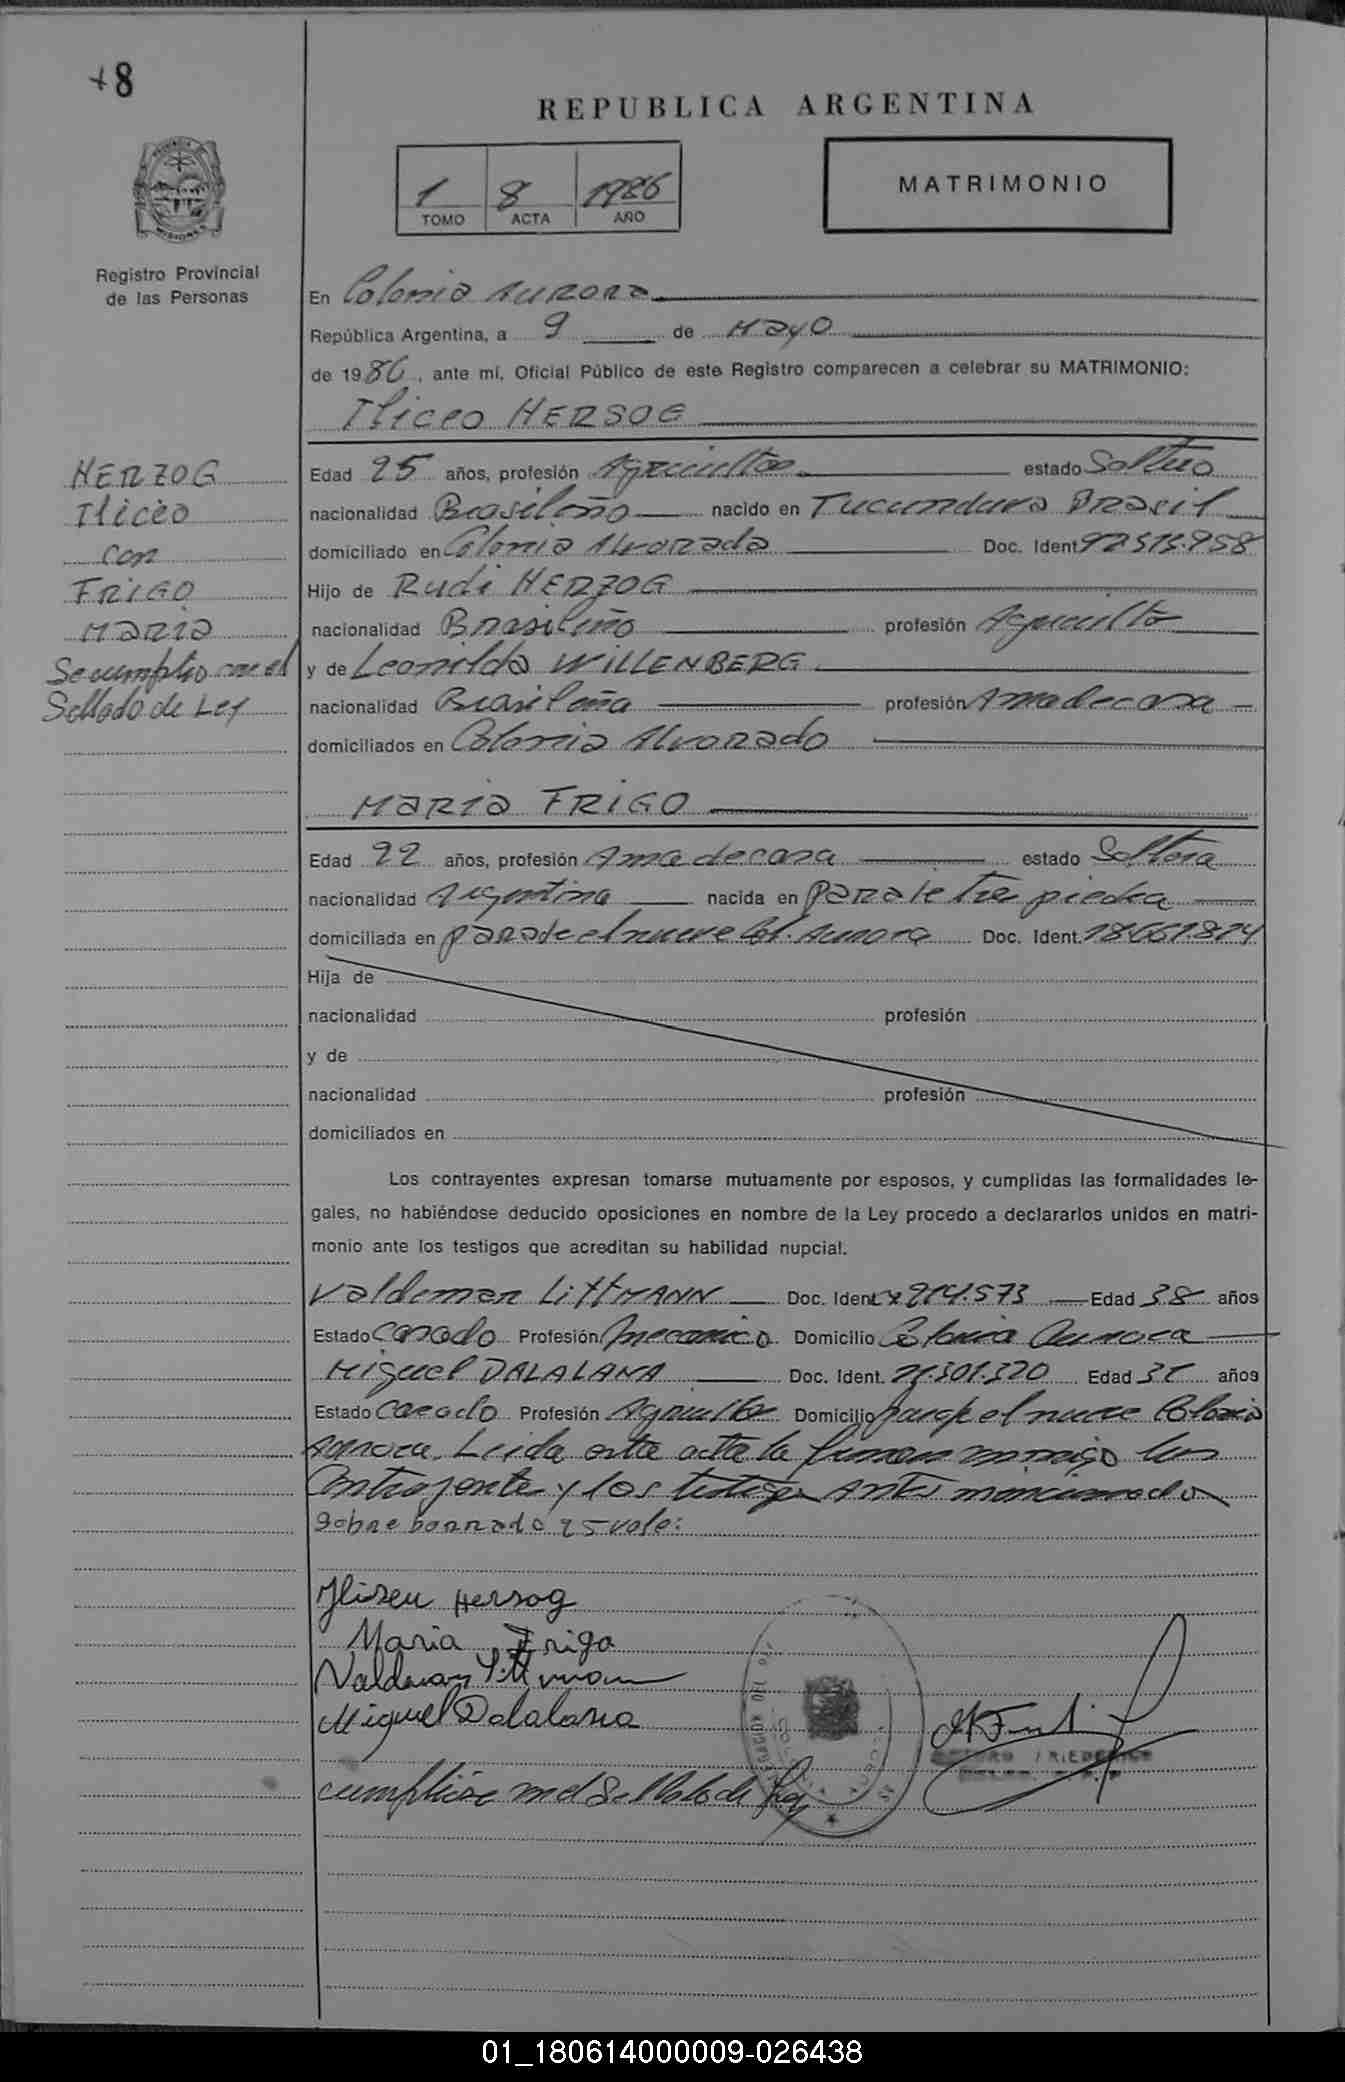 +8
REPUBLICA ARGENTINA
1 8 1986
TOMO ACTA AÑO
MATRIMONIO
Registro Provincial
de las Personas
En Colonia Aurora
República Argentina, a 9 de Mayo
de 1986, ante mí, Oficial Público de este Registro comparecen a celebrar su MATRIMONIO:
Iliceo HERSOG
HERZOG
Iliceo
con
FRIGO
MARIA
Se cumplio con el
Sellado de Ley
Edad 25 años, profesión Agricultor estado Soltero
nacionalidad Brasileño nacido en Tucunduva Brasil
domiciliado en Colonia Alvorada Doc. Ident. 92.515.958
Hijo de Rudi HERZOG
nacionalidad Brasileño profesión Agricultor
y de Leonilda WILLENBERG
nacionalidad Brasileña profesión Ama de casa
domiciliados en Colonia Alvorado
MARIA FRIGO
Edad 22 años, profesión Ama de casa estado Soltera
nacionalidad Argentina nacida en paraje tres piedra
domiciliada en paraje el nueve Col. Aurora Doc. Ident. 18.661.814
Hija de
nacionalidad profesión
y de
nacionalidad profesión
domiciliados en
Los contrayentes expresan tomarse mutuamente por esposos, y cumplidas las formalidades le-
gales, no habiéndose deducido oposiciones en nombre de la Ley procedo a declararlos unidos en matri-
monio ante los testigos que acreditan su habilidad nupcial.
Valdemar LittMANN Doc. Ident. 214.573 Edad 38 años
Estado Casado Profesión Mecanico Domicilio Colonia Aurora
Miguel DALALANA Doc. Ident. 21.301.320 Edad 31 años
Estado Casado Profesión Agricultor Domicilio paraje el nueve Colonia
Aurora. Leida esta acta la firman conmigo los
Contrayentes y los testigos antes mencionados
Sobre borrado 25 vale:
Iliseu Hersog
Maria Frigo
Valdemar Littmann
Miguel Dalalana
cumpliose con el Sellado de Ley
01_180614000009-026438